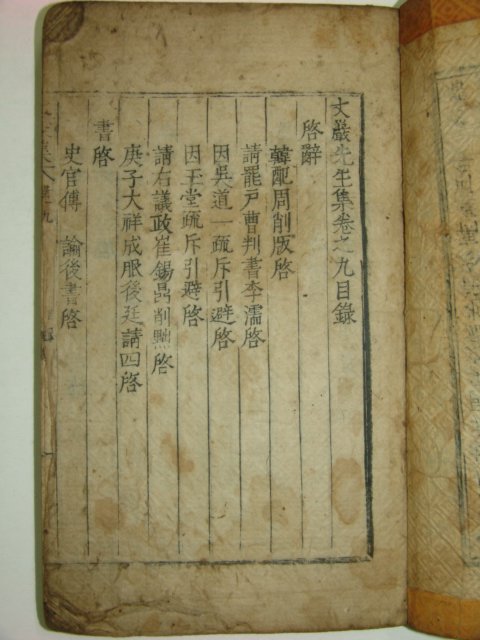 丈巖先生集卷之九目錄
啓辭
韓配周削版啓
請罷戶曹判書李濡啓
因吳道一疏斥引避啓
因玉堂疏斥引避啓
請右議政崔錫鼎削黜啓
庚子大祥成服後廷請四啓
書啓
史官傳 諭後書啓